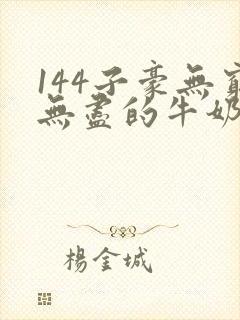 144子豪無窮
無盡的牛奶
楊金城